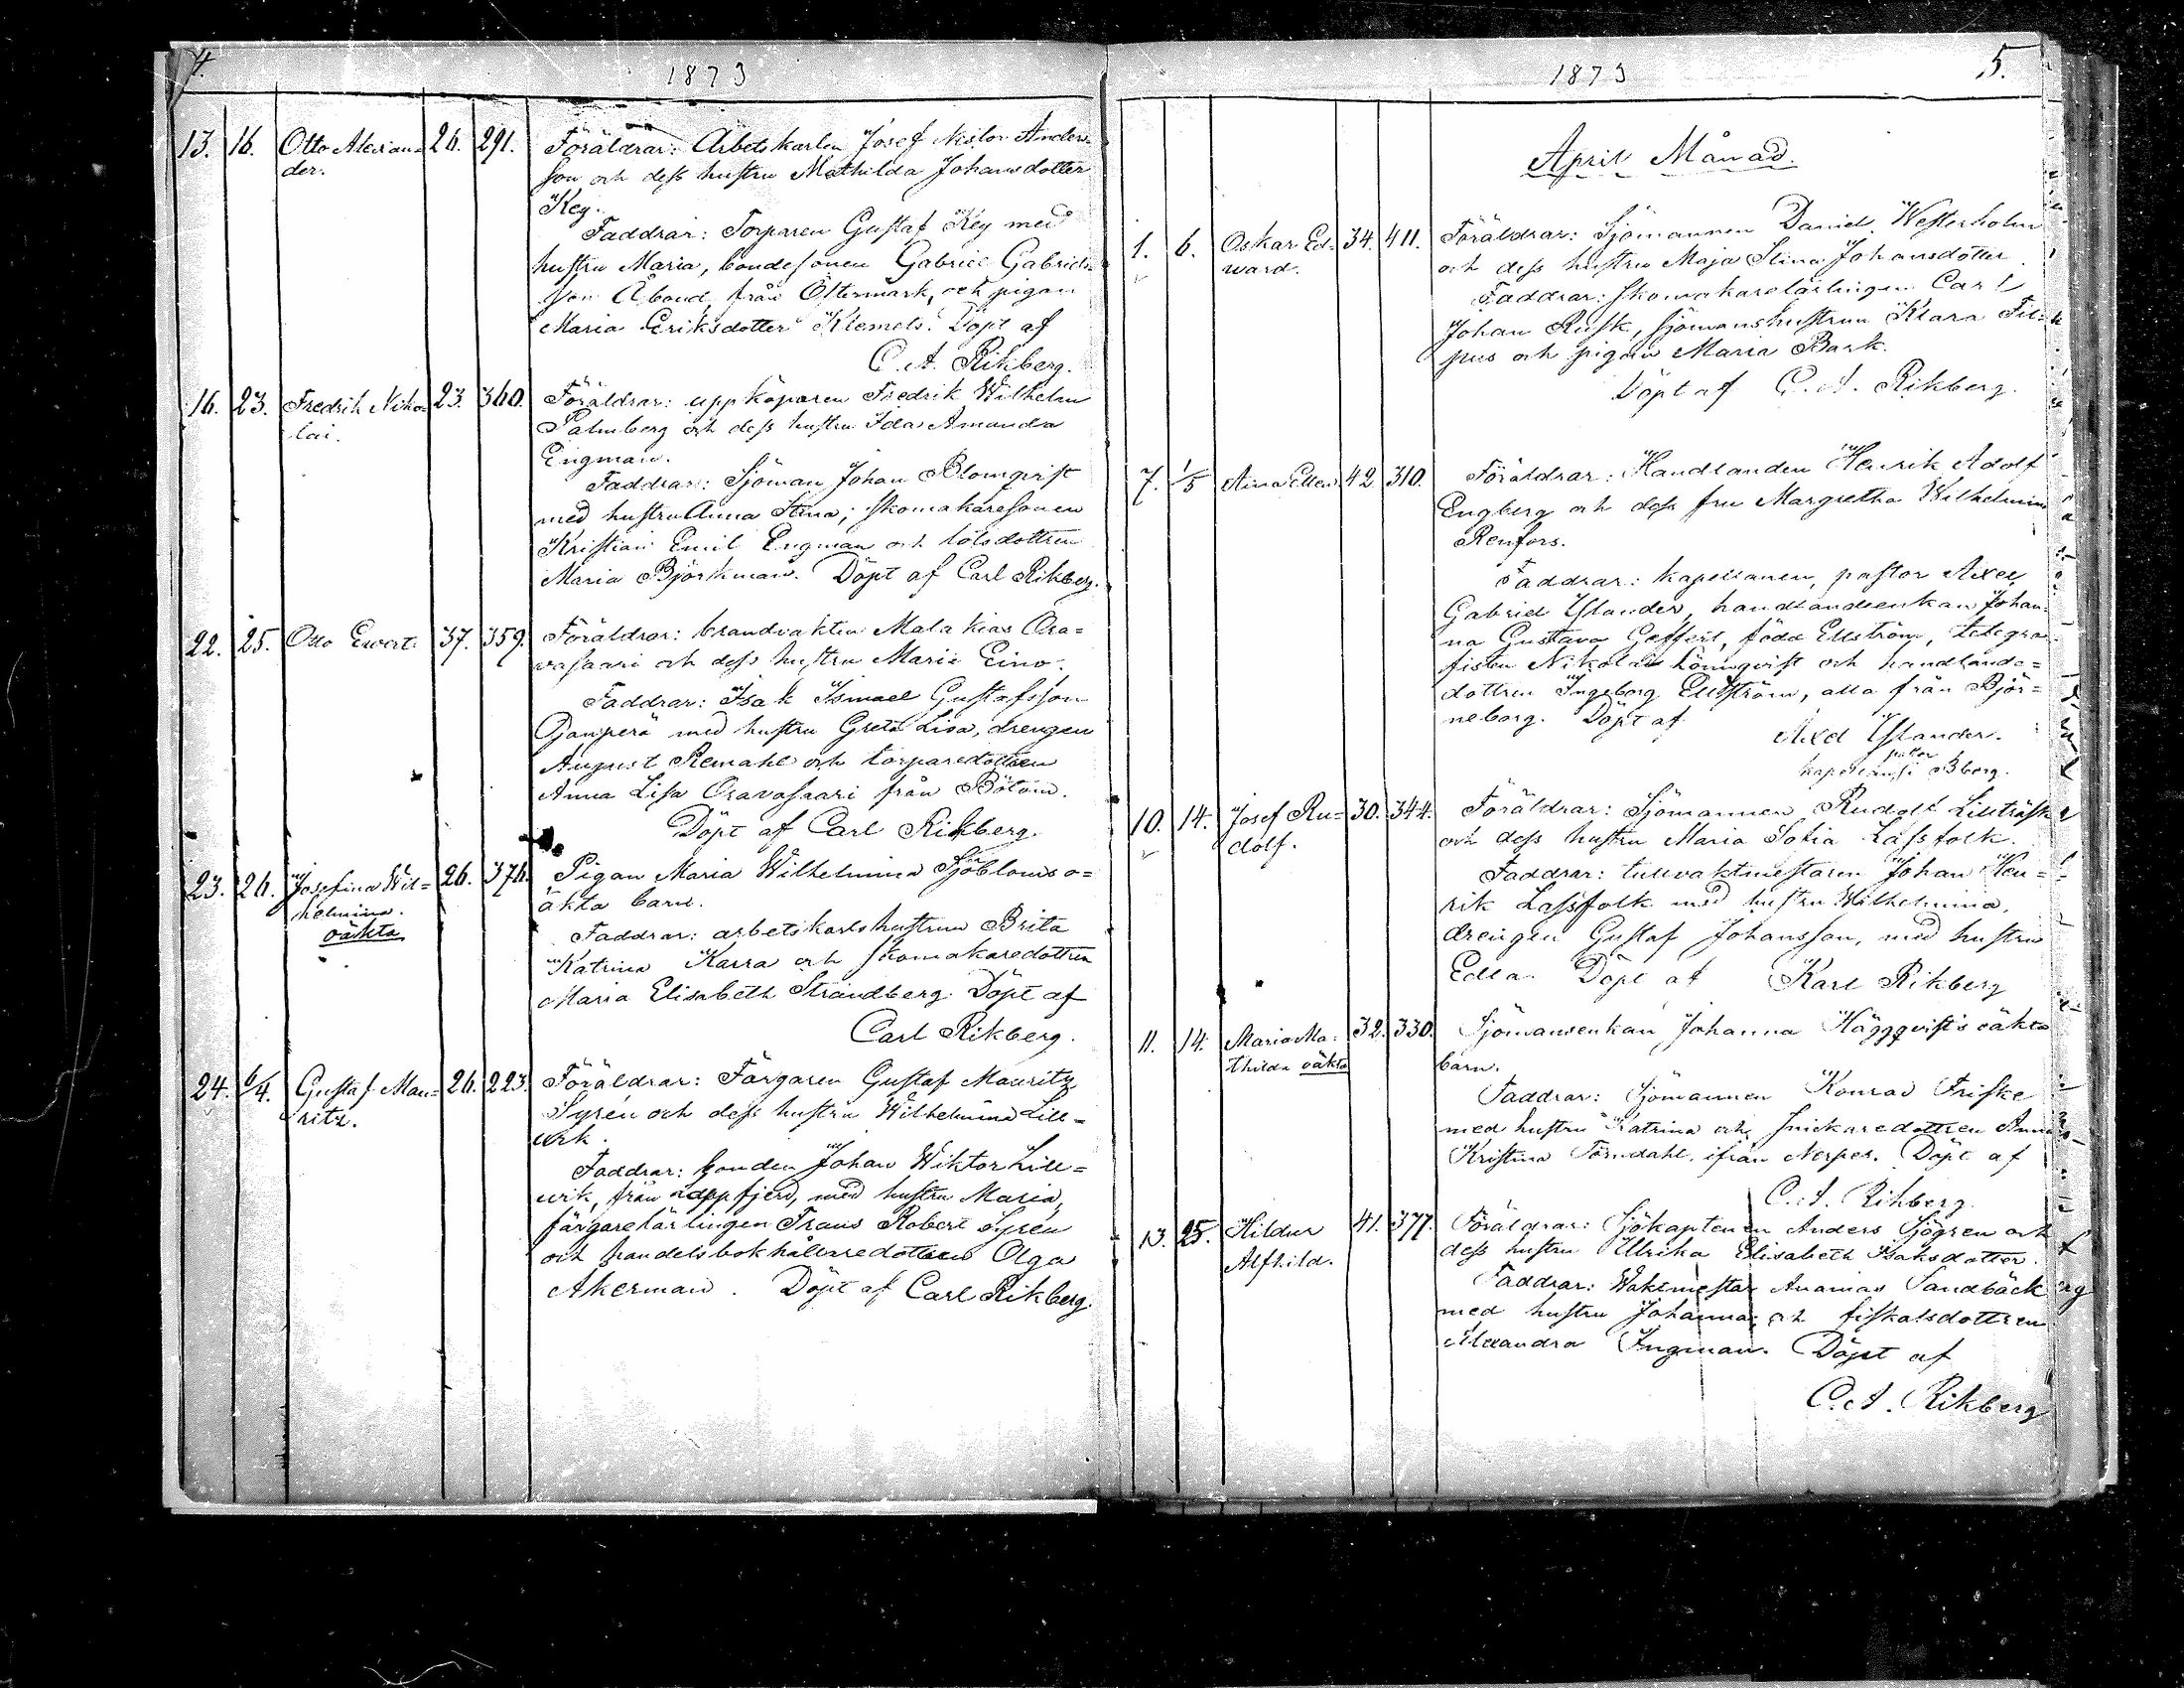 4.
1873
13. 16. Otto Alexan= 26. 291. Föräldrar: Arbetskarlen Josef Nestor Anders=
der. son och dess hustru Mathilda Johansdotter
Key.
Faddrar: Torparen Gustaf Key med
hustru Maria, bondesonen Gabriel Gabriels=
son Åbond, från Östermark, och pigan
Maria Eriksdotter Klemets. Döpt af
C. A. Rikberg.
16. 23. Fredrik Niko= 23. 360. Föräldrar: uppköparen Fredrik Wilhelm
lai. Palmberg och dess hustru Ida Amanda
Engman.
Faddrar: Sjöman Johan Blomqvist
med hustru Anna Stina; skomakaresonen
Kristian Emil Engman och lotsdottren
Maria Björkman. Döpt af Carl Rikberg.
22. 25. Otto Ewert. 37. 359. Föräldrar: brandvakten Malakias Ora=
vasaari och dess hustru Maria Eino.
Faddrar: Isak Ismael Gustafsson
med hustru Greta Lisa, drengen
August Remahl och torparedottren
Anna Lisa Oravasaari från Bötom.
Döpt af Carl Rikberg.
23. 26. Josefina Wil= 26. 376. Pigan Maria Wilhelmina Sjöbloms o=
helmina. äkta barn.
oäkta Faddrar: arbetskarlshustrun Brita
Katrina Karra och skomakaredottren
Maria Elisabeth Strandberg. Döpt af
Carl Rikberg.
24. 6/4. Gustaf Mau= 26. 223. Föräldrar: Färgaren Gustaf Mauritz
ritz. Syrén och dess hustru Wilhelmina Lill=
wik.
Faddrar: bonden Johan Wiktor Lill=
wik, från Lappfjerd, med hustru Maria,
färgarelärlingen Frans Robert Syrén
och handelsbokhållaredottren Olga
Åkerman. Döpt af Carl Rikberg.
1873
5.
April Månad.
1. 6. Oskar Ed= 34. 411. Föräldrar: Sjömannen Daniel Westerholm
ward. och dess hustru Maja Stina Johansdotter.
Faddrar: skomakarelärlingen Carl
Johan Rusk, sjömanshustrun Klara Fil=
pus och pigan Maria Bark.
Döpt af C. A. Rikberg.
7. 1/5 Aina Ellen 42 310. Föräldrar: Handlanden Henrik Adolf
Engberg och dess fru Margretha Wilhelmina
Renfors.
Faddrar: kapellanen, pastor Axel
Gabriel Islander, handlandeenkan Johan=
na Gustava Geffert, född Ellström, telegra=
fisten Nikolai Lönnqvist och handlande=
dottren Ingeborg Ellström, alla från Björ=
neborg. Döpt af
Axel Islander.
pastor
kapellan i Bborg.
10. 14. Josef Ru= 30. 344. Föräldrar: Sjömannen Rudolf Lillträsk
dolf. och dess hustru Maria Sofia Lassfolk.
Faddrar: tullvaktmestaren Johan Hen=
rik Lassfolk med hustru Wilhelmina,
drengen Gustaf Johansson, med hustru
Edla. Döpt af Karl Rikberg
11. 14. Maria Ma= 32. 330. Sjömansenkan Johanna Häggqvist's oäkta
thilda oäkta barn.
Faddrar: Sjömannen Konrad Friske
med hustru Katrina och snickaredottren Anna
Kristina Törndahl, ifrån Nerpes. Döpt af
C. A. Rikberg.
13. 25. Hildur 41. 377. Föräldrar: Sjökaptenen Anders Sjögren och
Alfhild. dess hustru Ulrika Elisabeth Isaksdotter.
Faddrar: Waktmestar Ananias Sandbäck
med hustru Johanna och fiskalsdottren
Alexandra Ingman. Döpt af
C. A. Rikberg